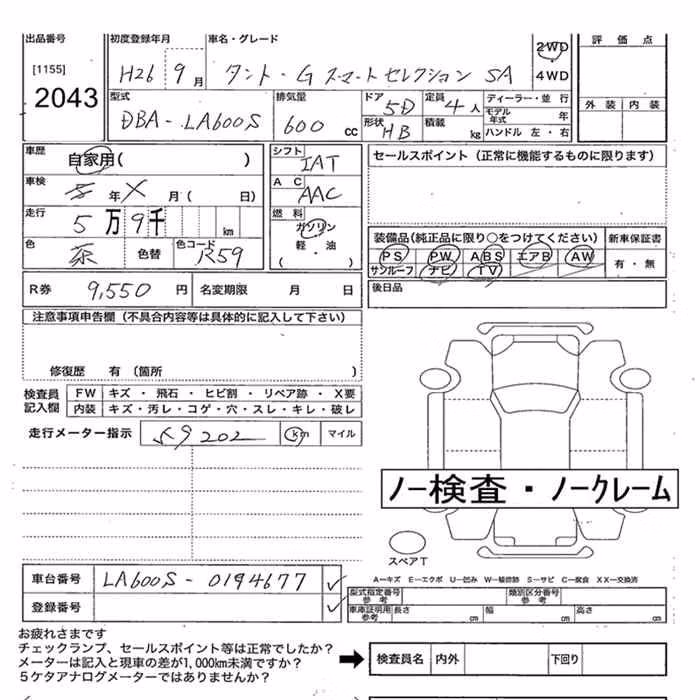 出品番号
[1155]
2043
初度登録年月
H26 9月
車名・グレード
タント・G スマートセレクション SA
2WD
4WD
評価点
外装 内装
型式
DBA-LA600S
排気量
600 cc
ドア 5D
形状 HB
定員 4人
積載 kg
ディーラー・並行
モデル年式 年
ハンドル 左・右
車歴
自家用( )
車検
年 X 月 ( 日)
走行
5万9千 km
色
茶
色替
色コード R59
シフト
IAT
AC
AAC
燃料
ガソリン
軽・油
( )
セールスポイント(正常に機能するものに限ります)
装備品(純正品に限り○をつけてください)
新車保証書
PS PW ABS エアB AW
サンルーフ ナビ TV
有・無
R券 9,550円
名変期限 月 日
後日品
注意事項申告欄(不具合内容等は具体的に記入して下さい)
修復歴 有(箇所 )
検査員記入欄
FW キズ・飛石・ヒビ割・リペア跡・X要
内装 キズ・汚レ・コゲ・穴・スレ・キレ・破レ
走行メーター指示 59202 km マイル
ノー検査・ノークレーム
スペアT
A―キズ E―エクボ U―凹み W―補修跡 S―サビ C―腐食 XX―交換済
車台番号 LA600S-0194677
登録番号
型式指定番号 参考
類別区分番号 参考
車庫証明用 参考 長さ cm 幅 cm 高さ cm
お疲れさまです
チェックランプ、セールスポイント等は正常でしたか?
メーターは記入と現車の差が1,000km未満ですか?
5ケタアナログメーターではありませんか?
検査員名 内外 下回り